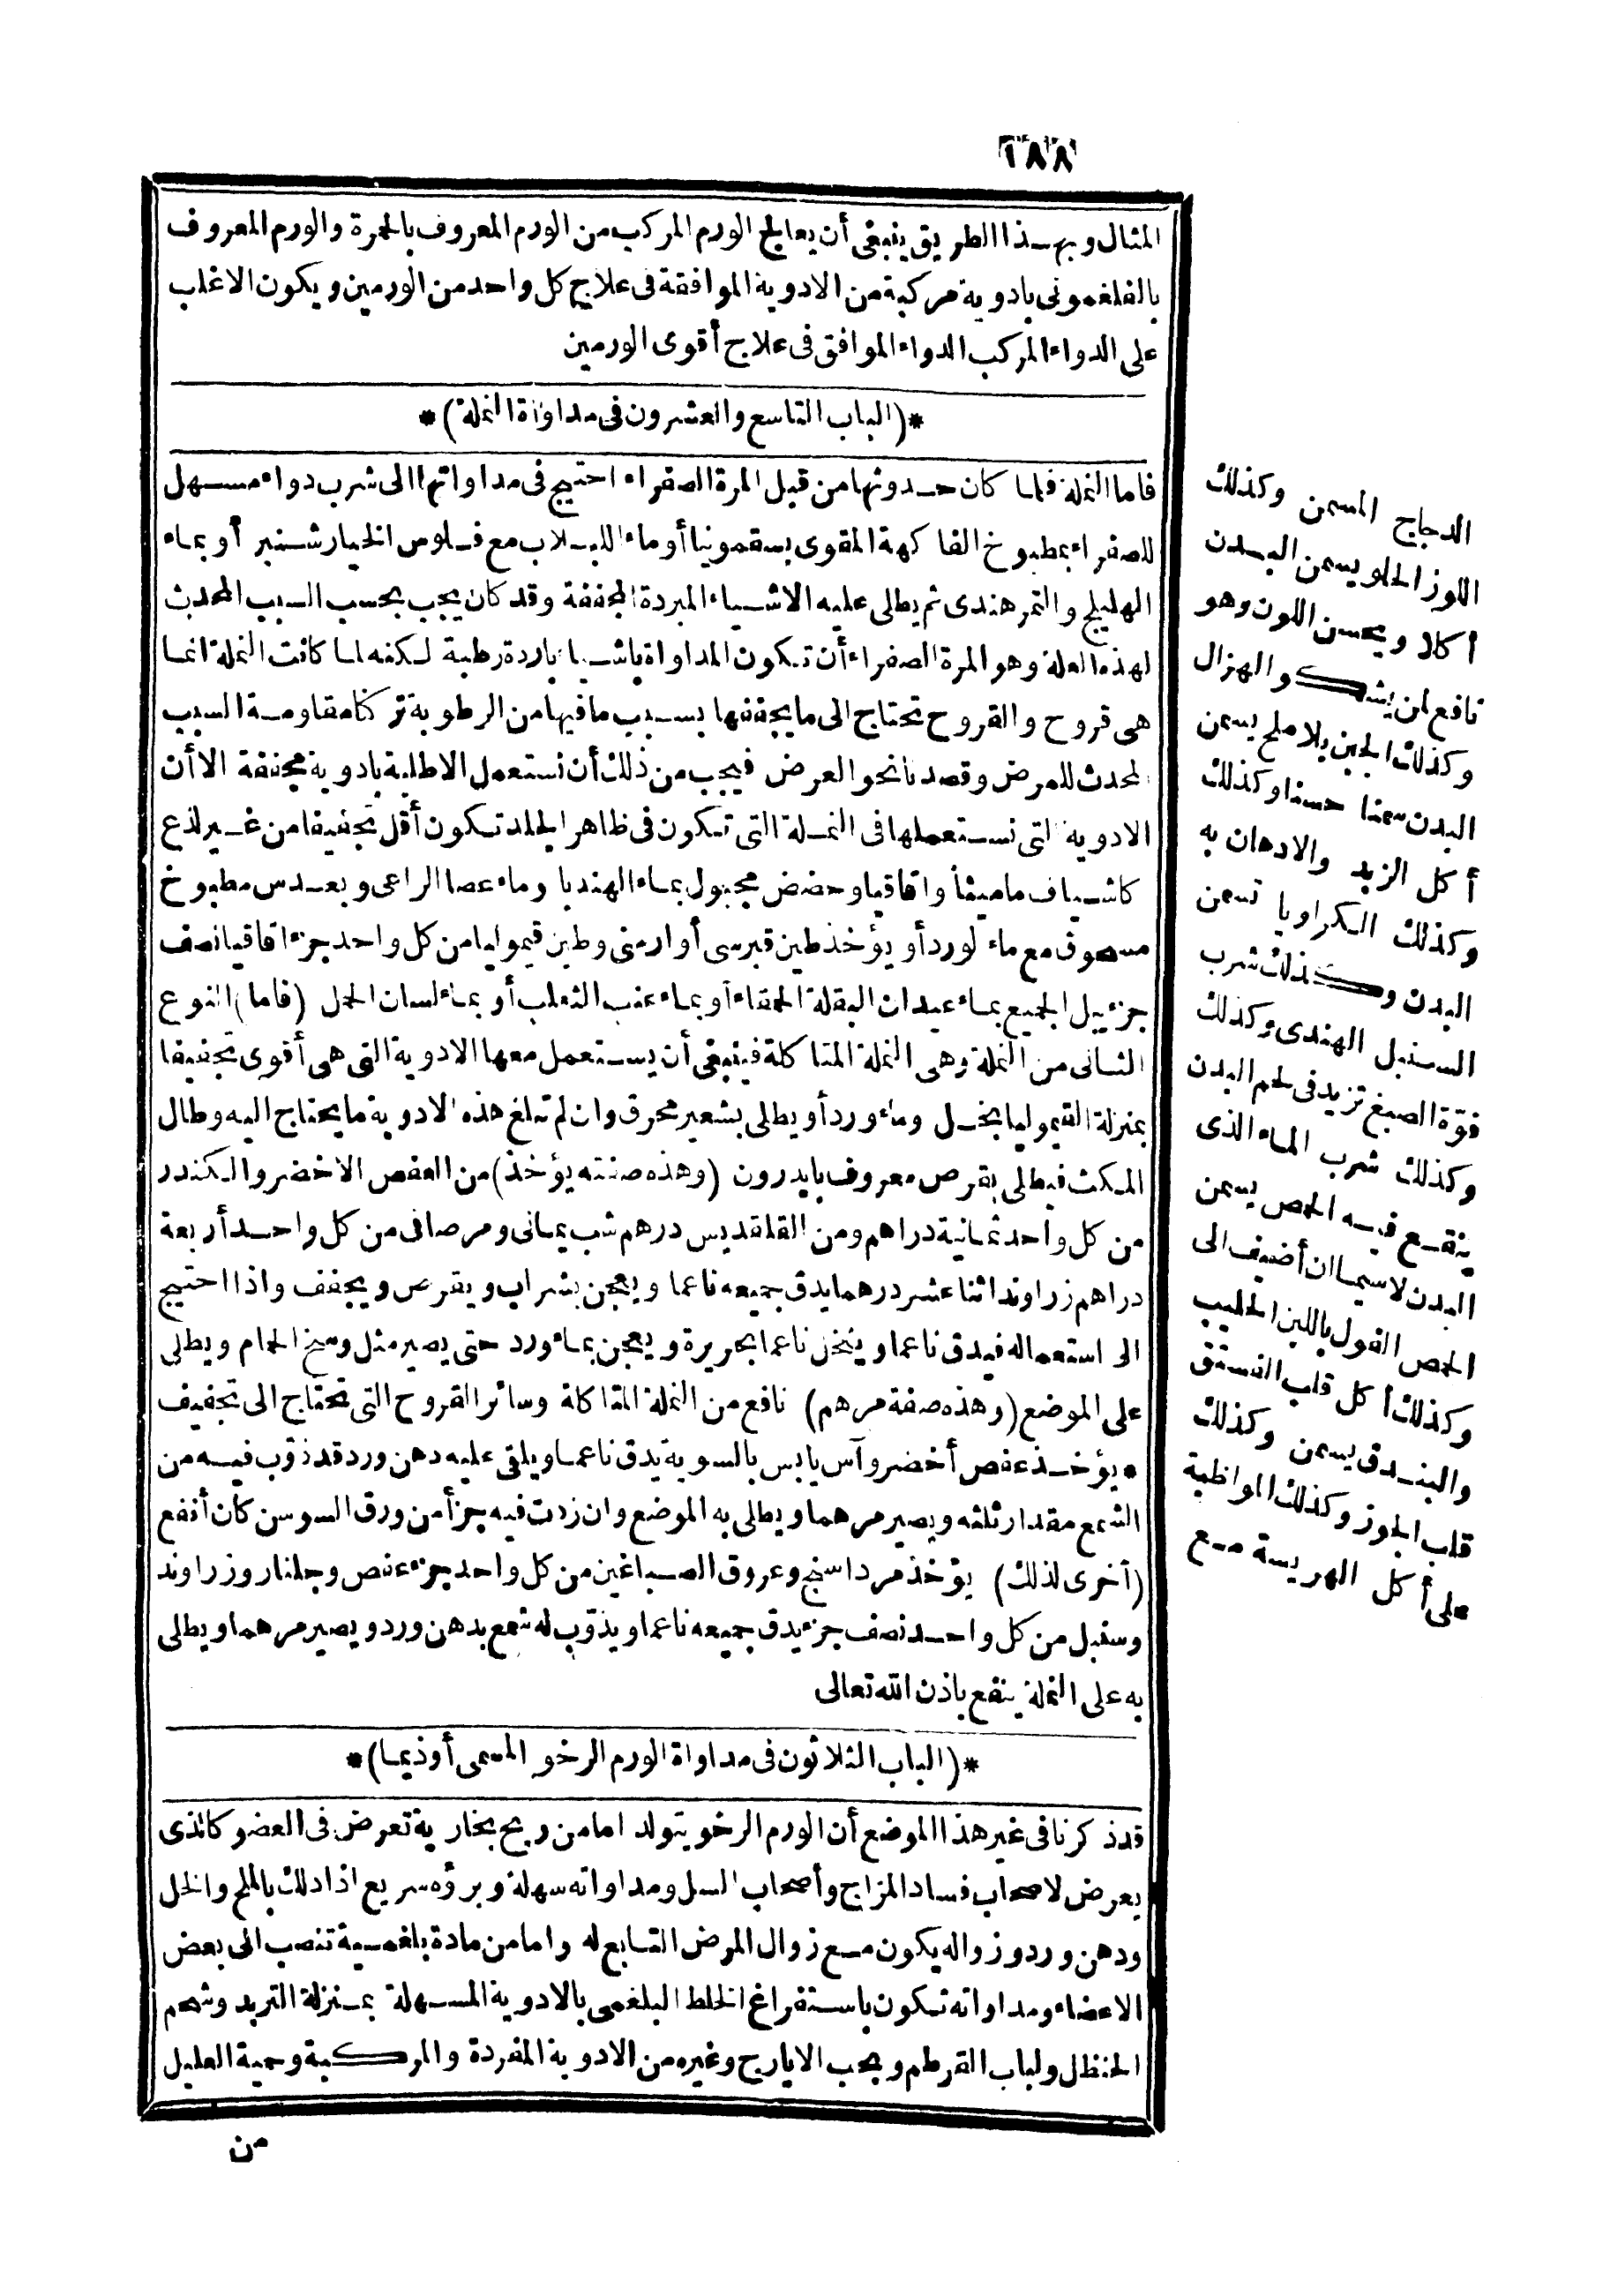 ١٨٨
المثال وبهذا الطريق ينبغي أن يعالج الورم المركب من الورم المعروف بالحمرة والورم المعروف
بالفلغموني بادوية مركبة من الادوية الموافقة في علاج كل واحد من الورمين ويكون الاغلب
على الدواء المركب الدواء الموافق في علاج أقوى الورمين
*(الباب التاسع والعشرون في مداواة النملة)*
فاما النملة فلما كان حدوثها من قبل المرة الصفراء احتيج في مداواتها الى شرب دواء مسهل
للصفراء بمطبوخ الفاكهة المقوى بسقمونيا أو ماء اللبلاب مع فلوس الخيارشنبر أو بماء
الهليلج والتمر هندى ثم يطلى عليه الاشياء المبردة المجففة وقد كان يجب بحسب السبب المحدث
لهذه العلة وهو المرة الصفراء أن تكون المداواة باشيا باردة رطبة لكنه لما كانت النملة انما
هي قروح والقروح تحتاج الى ما يجففها بسبب ما فيها من الرطوبة تركنا مقاومة السبب
المحدث للمرض وقصدنا نحو العرض فيجب من ذلك أن نستعمل الاطلية بادوية مجففة الا أن
الادوية التي نستعملها في النملة التي تكون في ظاهر الجلد تكون أقل تجفيفا من غير لذع
كاشياف ماميثا واقاقيا وحضض مجبول بماء الهندبا وماء عصا الراعى وبعدس مطبوخ
مسحوق مع ماء لورد أو يؤخذ طين قبرسى أو ارمنى وطين قيموليا من كل واحد جزء اقاقيا نصف
جزء يبل الجميع بماء عيدان البقلة الحمقاء أو بماء عنب الثعلب أو بماء لسان الحمل (فاما) النوع
الثانى من النملة وهى النملة المتاكلة فينبغى أن يستعمل معها الادوية التى هى أقوى تجفيفا
بمنزلة القيموليا بخل وماء ورد أو يطلى بشعير محرق وان لم تبلغ هذه الادوية ما يحتاج اليه وطال
المكث فيطلى بقرص معروف بايدرون (وهذه صنته يؤخذ) من العفص الاخضر والكندر
من كل واحد ثمانية دراهم ومن القلقديس درهم شب يمانى ومر صافى من كل واحد أربعة
دراهم زراوند اثنا عشر درهما يدق جميعه ناعما ويعجن بشراب ويقرص ويجفف واذا احتيج
الى استعماله فيدق ناعما وينخل ناعما بحريرة ويعجن بماء ورد حتى يصير مثل وسخ الحمام ويطلى
على الموضع (وهذه صفة مرهم) نافع من النملة المتاكلة وسائر القروح التى تحتاج الى تجفيف
* يؤخذ عفص أخضر وآس يابس بالسوية يدق ناعما ويلقى عليه دهن ورد قد ذوّب فيه من
الشمع مقدار ثلثه ويصير مرهما ويطلى به الموضع وان زدت فيه جزأ من ورق السوسن كان أنفع
(أخرى لذلك) يؤخذ مرداسنج وعروق الصباغين من كل واحد جزء عفص وجلنار وزراوند
وسنبل من كل واحد نصف جزء يدق جميعه ناعما ويذوّب له شمع بدهن ورد ويصير مرهما ويطلى
به على النملة ينفع باذن الله تعالى
*(الباب الثلاثون في مداواة الورم الرخو المسمى أوذيما)*
قد ذكرنا في غير هذا الموضع أن الورم الرخو يتولد اما من ريح بخارية تعرض في العضو كالذى
يعرض لاصحاب فساد المزاج وأصحاب السل ومداواته سهلة وبرؤه سريع اذا دلك بالملح والخل
ودهن ورد وزواله يكون مع زوال المرض التابع له واما من مادة بلغمية تنصب الى بعض
الاعضاء ومداواته تكون باستفراغ الخلط البلغمى بالادوية المسهلة بمنزلة التربد وشحم
الحنظل ولباب القرطم وبحب الايارج وغيره من الادوية المفردة والمركبة وحمية العليل
من
الدجاج المسمن وكذلك
اللوز الحلو يسمن البدن
أكلا ويحسن اللون وهو
نافع لمن يشكو الهزال
وكذلك الجبن بلا ملح يسمن
البدن سمنا حسنا وكذلك
أكل الزبد والادهان به
وكذلك الكراويا تسمن
البدن وكذلك شرب
السنبل الهندى وكذلك
فوّة الصبغ تزيد في لحم البدن
وكذلك شرب الماء الذى
ينقع فيه الحمص يسمن
البدن لاسيما ان أضيف الى
الحمص الفول باللبن الحليب
وكذلك أكل قلب الفستق
والبندق يسمن وكذلك
قلب الجوز وكذلك المواظبة
على أكل الهريسة مع